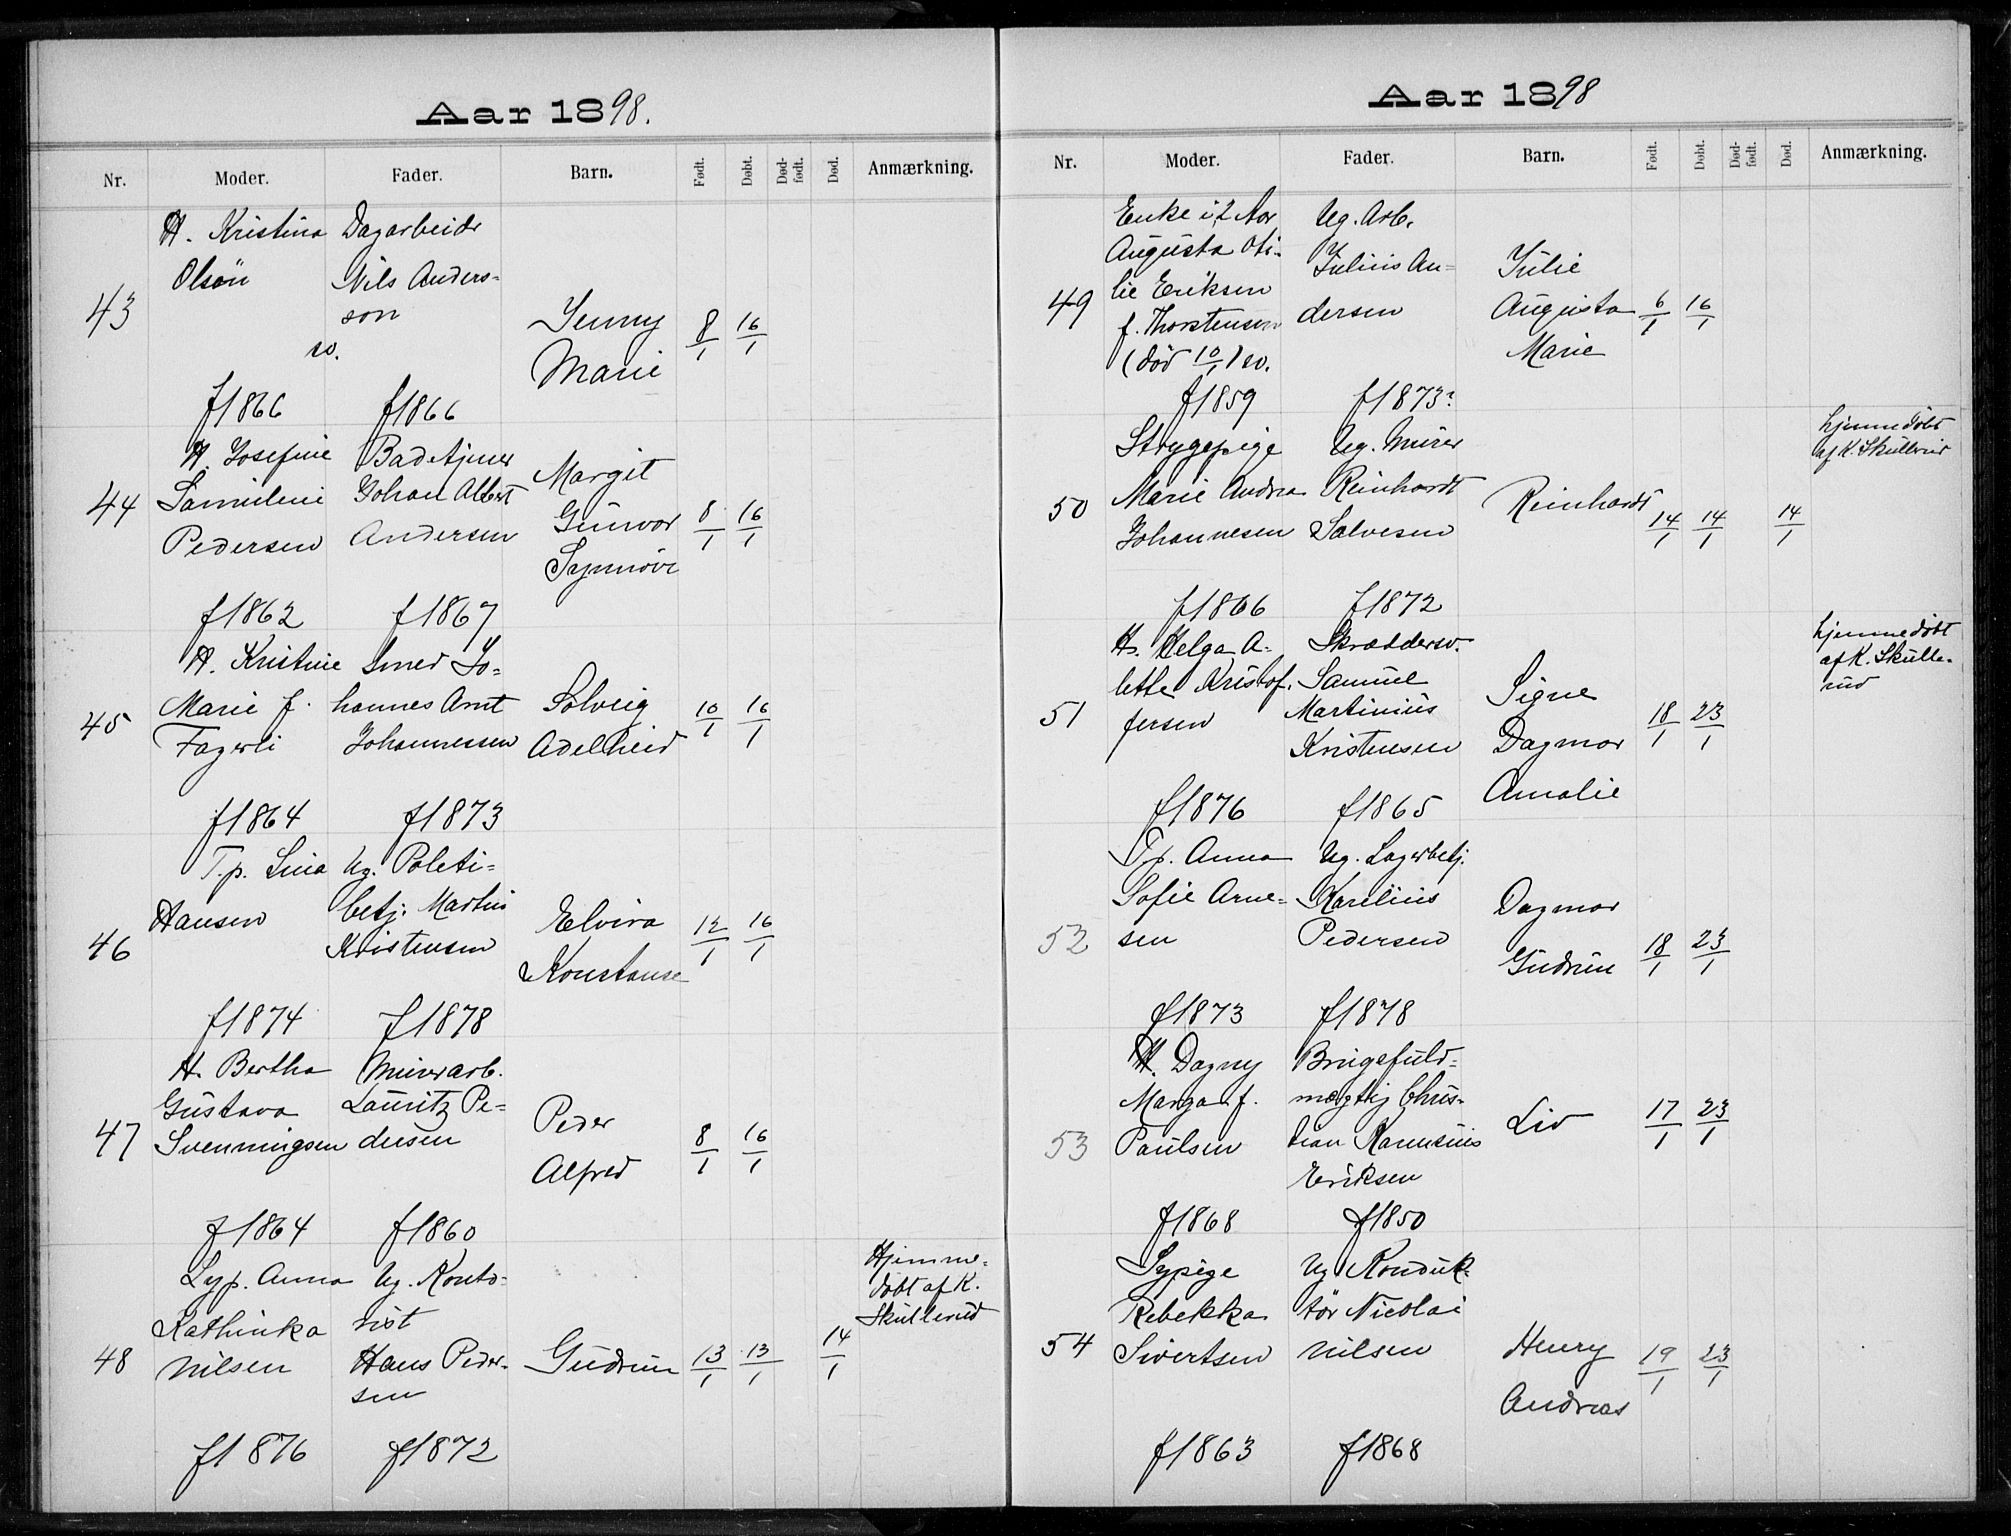 Aar 1898.
Nr. Moder. Fader. Barn. Født. Døbt. Død-født. Død. Anmærkning.
43
H. Kristina
Olsön
sv.
f 1866
Dagarbeidr
Nils Anders=
son
f 1866
Jenny
Marie
8/1 16/1
44
H. Josefine
Samuline
Pedersen
f 1862
Badetjener
Johan Albert
Andersen
f 1867
Margit
Gunvor
Synnöve
8/1 16/1
45
H. Kristine
Marie f.
Fagerli
f 1864
Smed Jo=
hannes Arnt
Johannessen
f 1873
Solveig
Adelheid
10/1 16/1
46
T.p. Lina
Hansen
f 1874
Ug. Politi=
betj. Martin
Kristensen
f 1878
Elvira
Konstanse
12/1 16/1
47
H. Bertha
Gustava
Svenningsen
f 1864
Murerarb.
Lauritz Pe=
dersen
f 1860
Peder
Alfred
8/1 16/1
48
Syp. Anna
Kathinka
Nilsen
f 1876
Ug. Konto-
rist
Hans Peder-
sen
f 1872
Gudrun
13/1 13/1 14/1
Hjemme-
døbt af K.
Skullerud
Aar 1898
Nr. Moder. Fader. Barn. Født. Døbt. Død-født. Død. Anmærkning.
49
Enke i 2 Aar
Augusta Oti-
lie Eriksen
f. Thorstensen
(død 10/1) sv.
f 1859
Ug. Arb.
Julius An=
dersen
f 1873?
Julie
Augusta
Marie
6/1 16/1
50
Strygepige
Marie Andrea
Johannesen
f 1866
Ug. Murer
Reinhardt
Salvesen
f 1872
Reinhardt
14/1 14/1 14/1
hjemmedøbt
af K. Skullerud
51
H. Helga A-
lette Kristof.
fersen
f 1876
Skræddersv.
Samuel
Martinius
Kristensen
f 1865
Signe
Dagmar
Amalie
18/1 23/1
hjemmedøbt
af K. Skulle-
rud
52
T.p. Anna
Sofie Arne-
sen
f 1873
Ug. Lagerbetj.
Karelius
Pedersen
f 1878
Dagmar
Gudrun
18/1 23/1
53
H. Dagny
Marga. f.
Paulsen
f 1868
Brugsfuld=
mægtig Chris-
tian Rasmusius
Eriksen
f 1850
Liv
17/1 23/1
54
Sypige
Rebekka
Sivertsen
f 1863
Ug. Konduk-
tör Nicolai
Nilsen
f 1868
Henry
Andreas
19/1 23/1